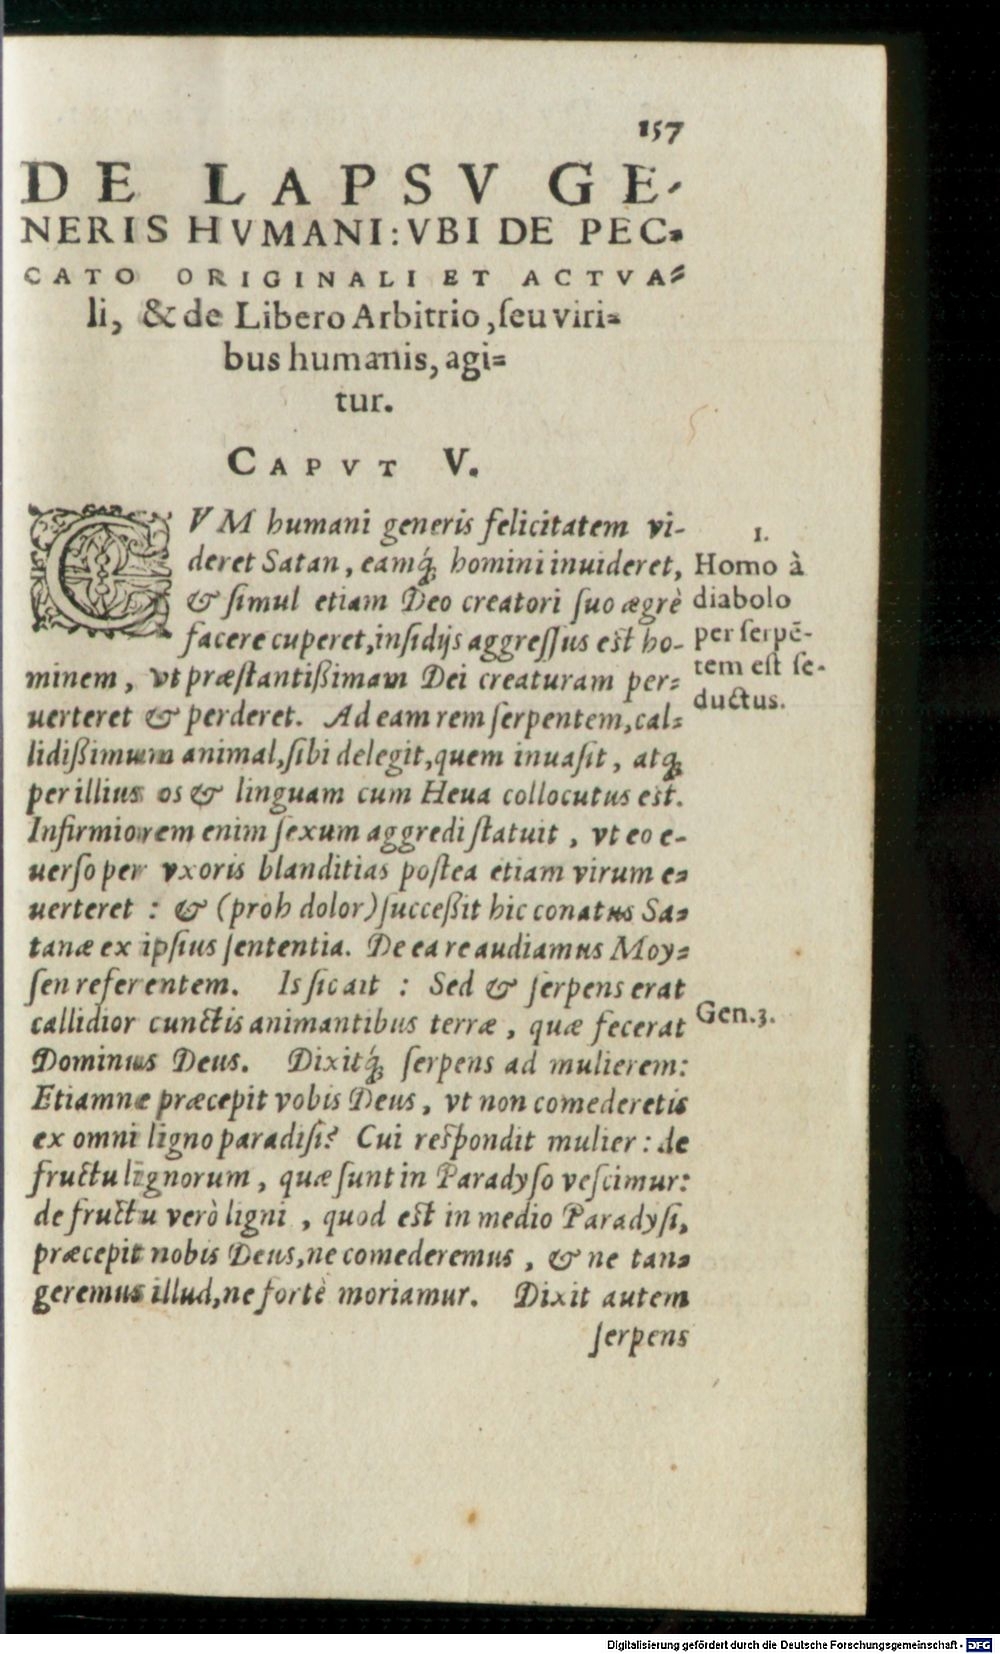 157
DE LAPSV GE-
NERIS HVMANI: VBI DE PEC-
CATO ORIGINALI ET ACTVA-
li, & de Libero Arbitrio, ſeu viri-
bus humanis, agi-
tur.
CAPVT V.
CVM humani generis felicitatem vi-
deret Satan, eamq́; homini inuideret,
& ſimul etiam Deo creatori ſuo ægrè
facere cuperet, inſidijs aggreſſus est ho-
minem, vt præſtantißimam Dei creaturam per-
uerteret & perderet. Ad eam rem ſerpentem, cal-
lidißimum animal, ſibi delegit, quem inuaſit, atq;
per illius os & linguam cum Heua collocutus est.
Infirmiorem enim ſexum aggredi ſtatuit, vt eo e-
uerſo per vxoris blanditias poſtea etiam virum e-
uerteret : & (proh dolor) ſucceßit hic conatus Sa-
tanæ ex ipſius ſententia. De ea re audiamus Moy-
ſen referentem. Is ſic ait : Sed & ſerpens erat
callidior cunctis animantibus terræ, quæ fecerat
Dominus Deus. Dixitq́; ſerpens ad mulierem:
Etiamne præcepit vobis Deus, vt non comederetis
ex omni ligno paradiſi? Cui respondit mulier : de
fructu lignorum, quæ ſunt in Paradyſo veſcimur:
de fructu verò ligni, quod est in medio Paradyſi,
præcepit nobis Deus, ne comederemus, & ne tan-
geremus illud, ne fortè moriamur. Dixit autem
ſerpens
1.
Homo à
diabolo
per ſerpē-
tem est ſe-
ductus.
Gen.3.
Digitalisierung gefördert durch die Deutsche Forschungsgemeinschaft - DFG